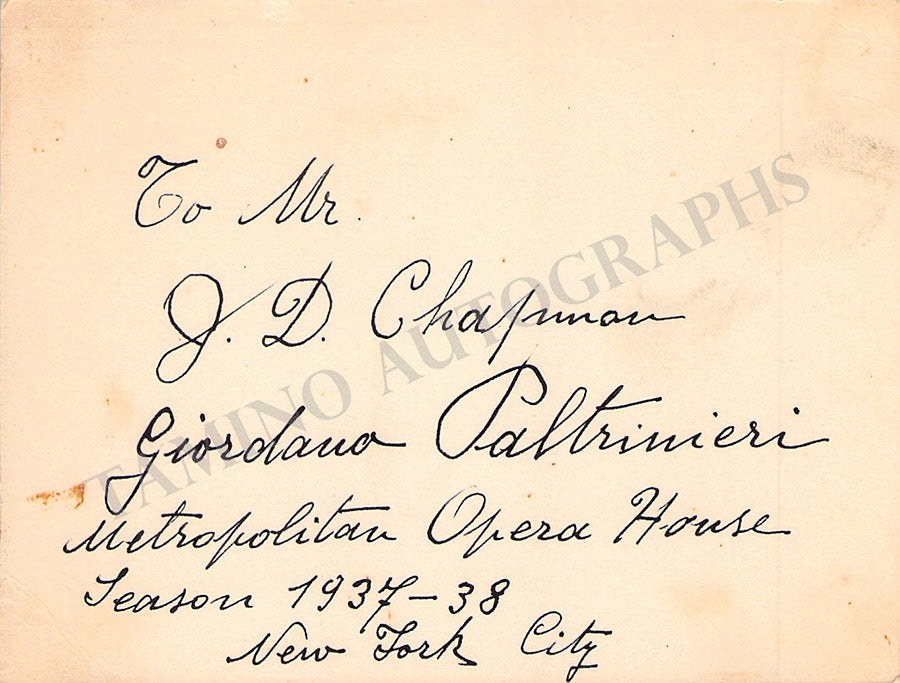 To Mr.
J. D. Chapman
Giordano Paltrinieri
Metropolitan Opera House
Season 1937-38
New York City
TAMINO AUTOGRAPHS